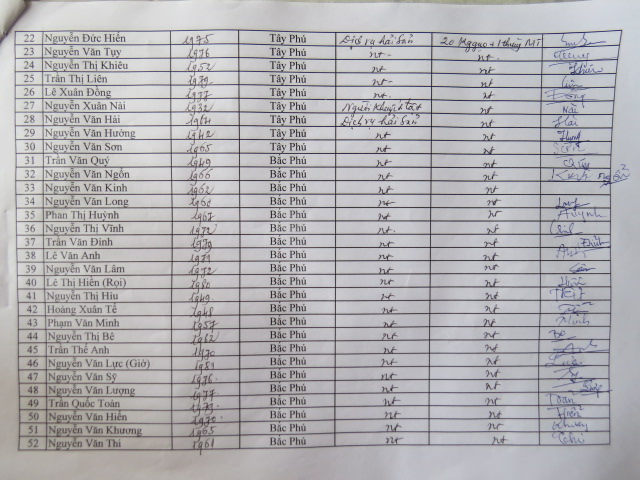 22 Nguyễn Đức Hiến 1975 Tây Phú Dịch vụ hải sản 20 kg gạo + 1 thùng MT
23 Nguyễn Văn Tụy 1976 Tây Phú nt nt
24 Nguyễn Thị Khiêu 1952 Tây Phú nt nt
25 Trần Thị Liên 1979 Tây Phú nt nt
26 Lê Xuân Đồng 1977 Tây Phú nt nt Đồng
27 Nguyễn Xuân Nài 1932 Tây Phú Người khuyết tật nt Nài
28 Nguyễn Văn Hải 1964 Tây Phú Dịch vụ hải sản nt Hải
29 Nguyễn Văn Hướng 1942 Tây Phú nt nt
30 Nguyễn Văn Sơn 1965 Tây Phú nt nt Sơn
31 Trần Văn Quý 1949 Bắc Phú nt nt Quý
32 Nguyễn Văn Ngôn 1966 Bắc Phú nt nt
33 Nguyễn Văn Kinh 1962 Bắc Phú nt nt
34 Nguyễn Văn Long 1960 Bắc Phú nt nt Long
35 Phan Thị Huỳnh 1967 Bắc Phú nt nt Huỳnh
36 Nguyễn Thị Vĩnh 1972 Bắc Phú nt nt
37 Trần Văn Đình 1979 Bắc Phú nt nt
38 Lê Văn Anh 1971 Bắc Phú nt nt Anh
39 Nguyễn Văn Lâm 1972 Bắc Phú nt nt
40 Lê Thị Hiền (Rọi) 1980 Bắc Phú nt nt Hiền
41 Nguyễn Thị Hiu 1949 Bắc Phú nt nt
42 Hoàng Xuân Tề 1948 Bắc Phú nt nt
43 Phạm Văn Minh 1957 Bắc Phú nt nt Minh
44 Nguyễn Thị Bê 1962 Bắc Phú nt nt Bê
45 Trần Thế Anh 1970 Bắc Phú nt nt Anh
46 Nguyễn Văn Lực (Giờ) 1981 Bắc Phú nt nt
47 Nguyễn Văn Sỹ 1976 Bắc Phú nt nt Sỹ
48 Nguyễn Văn Lượng 1977 Bắc Phú nt nt
49 Trần Quốc Toản 1973 Bắc Phú nt nt Toản
50 Nguyễn Văn Hiển 1970 Bắc Phú nt nt Hiển
51 Nguyễn Văn Khương 1965 Bắc Phú nt nt
52 Nguyễn Văn Thi 1961 Bắc Phú nt nt